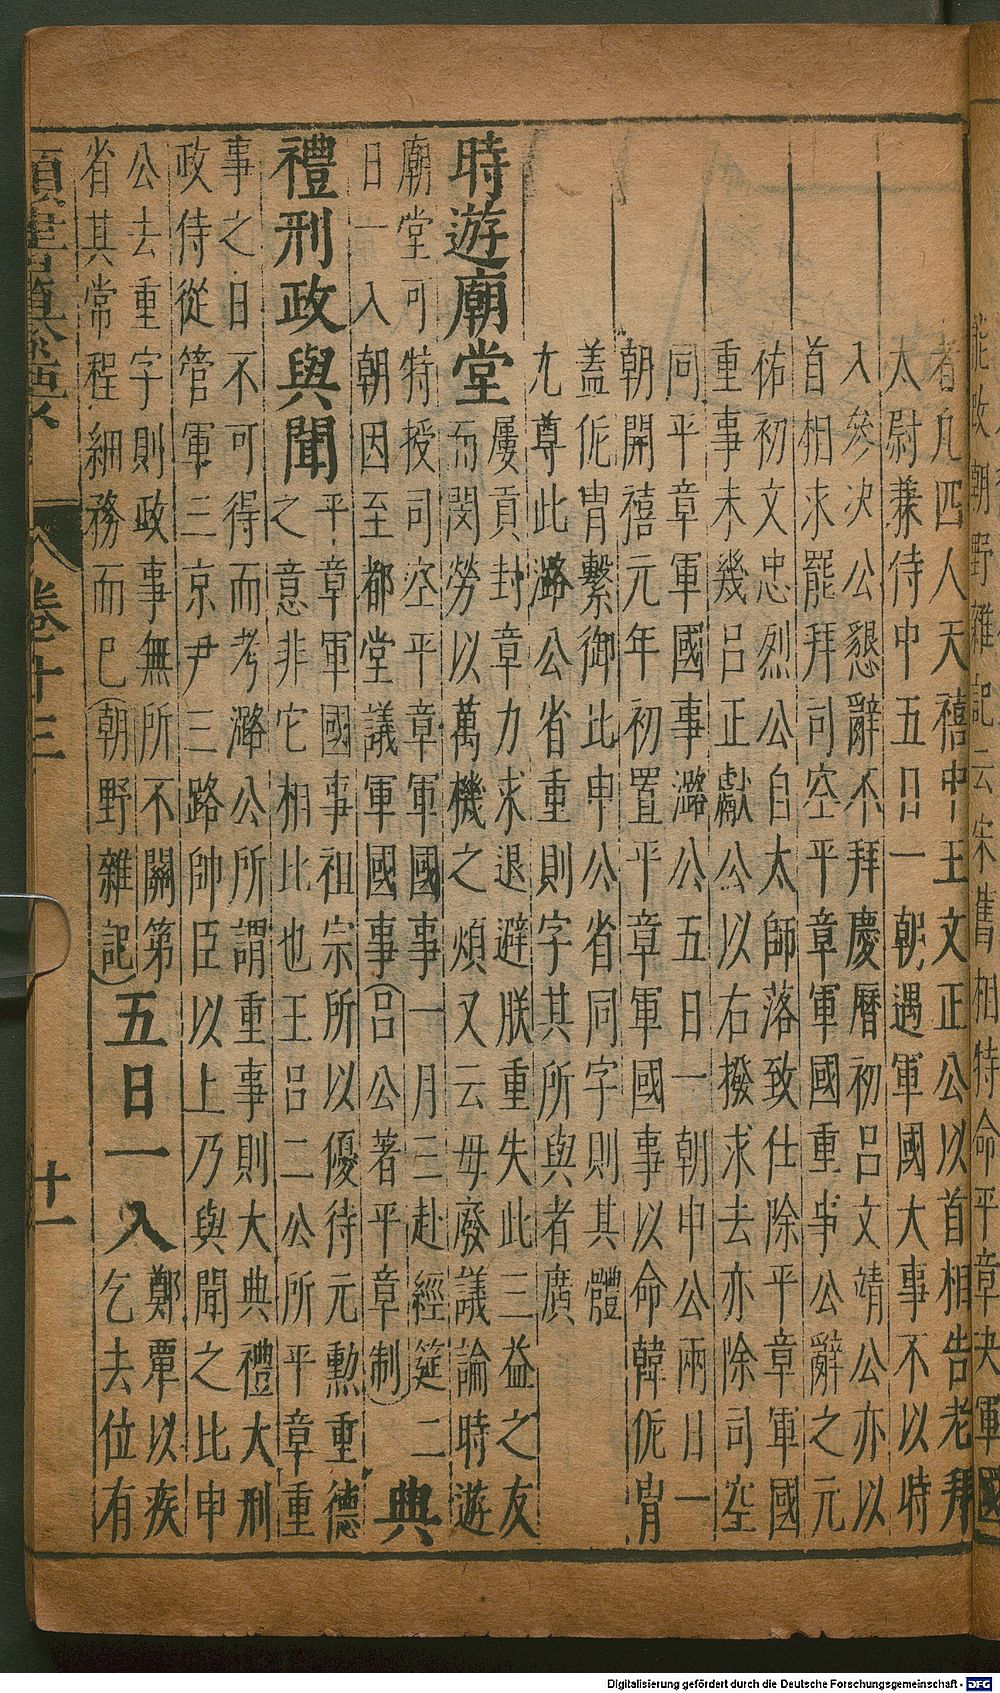 能改朝野雜記云宋舊相特命平章決軍國
者凡四人天禧中王文正公以首相告老拜
太尉兼侍中五日一朝遇軍國大事不以時
入參決公懇辭不拜慶曆初呂文靖公亦以
首相求罷拜司空平章軍國重事公辭之元
佑初文忠烈公自太師落致仕除平章軍國
重事未幾呂正獻公以右揆求去亦除司空
同平章軍國事潞公五日一朝申公兩日一
朝開禧元年初置平章軍國事以命韓侂冑
蓋侂冑繫御比申公省同字則其體
尤尊此潞公省重則字其所與者廣
時遊廟堂
屢貢封章力求退避朕重失此三益之友
而閔勞以萬機之煩又云毋廢議論時遊
廟堂可特授司空平章軍國事一月三赴經筵二
日一入朝因至都堂議軍國事(呂公著平章制)
典
禮刑政與聞
平章軍國事祖宗所以優待元勲重德
之意非它相比也王呂二公所平章重
事之日不可得而考潞公所謂重事則大典禮大刑
政侍從管軍三京尹三路帥臣以上乃與聞之比申
公去重字則政事無所不關第
省其常程細務而已(朝野雜記)
五日一入
鄭覃以疾
乞去位有
卷十三
十一
Digitalisierung gefördert durch die Deutsche Forschungsgemeinschaft - DFG